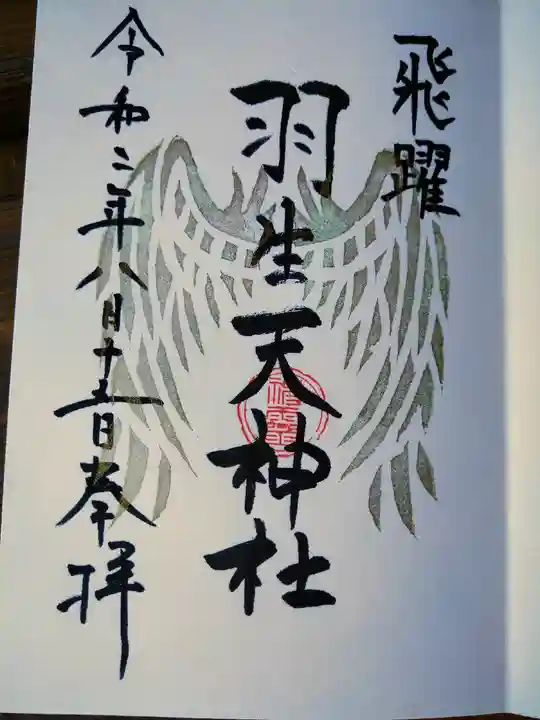 飛躍
羽生天神社
令和三年八月十五日奉拝